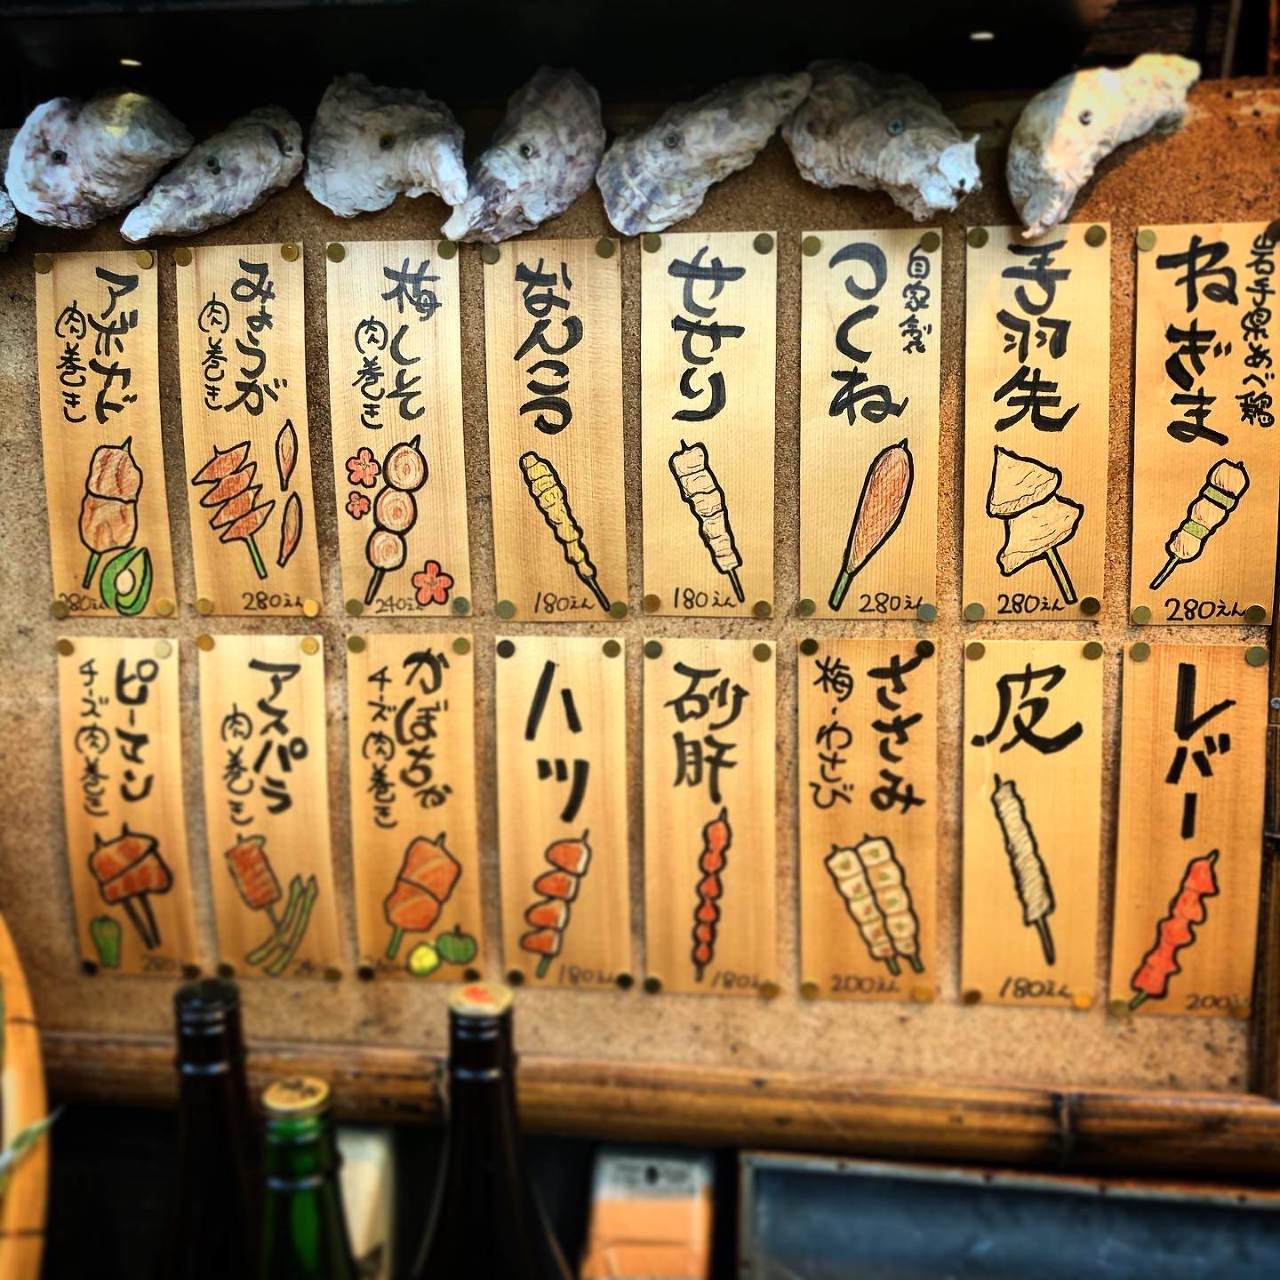 岩手県めぐ鶏
ねぎま
280えん
手羽先
280えん
自家製
つくね
280えん
せせり
180えん
なんこつ
180えん
梅しそ
肉巻き
240えん
みょうが
肉巻き
280えん
アボカド
肉巻き
280えん
レバー
200えん
皮
180えん
ささみ
梅・わさび
200えん
砂肝
180えん
ハツ
180えん
かぼちゃ
チーズ肉巻き
アスパラ
肉巻き
ピーマン
チーズ肉巻き